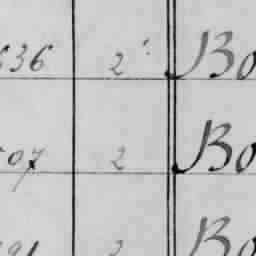 636 2 Bo
507 2 Bo
2 Bo